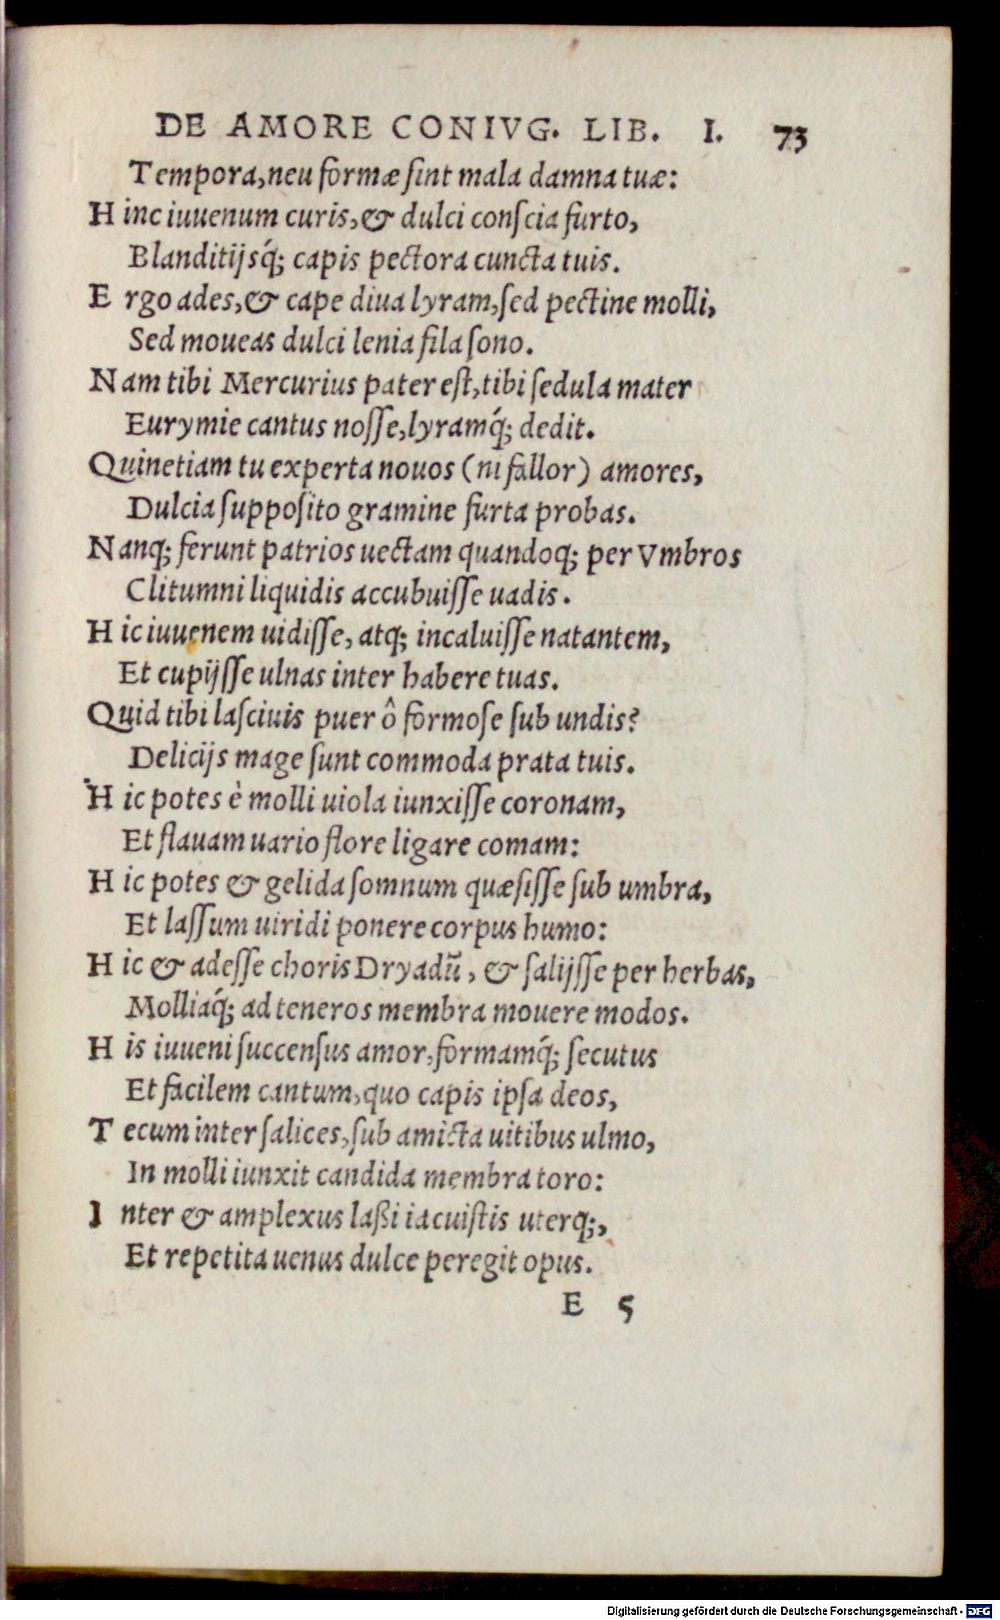 DE AMORE CONIVG. LIB. I. 73
Tempora, neu formæ ſint mala damna tuæ:
H inc iuuenum curis, & dulci conſcia furto,
Blanditijsq́; capis pectora cuncta tuis.
E rgo ades, & cape diua lyram, ſed pectine molli,
Sed moueas dulci lenia fila ſono.
N am tibi Mercurius pater eſt, tibi ſedula mater
Eurymie cantus noſſe, lyramq́; dedit.
Quinetiam tu experta nouos (ni fallor) amores,
Dulcia ſuppoſito gramine furta probas.
N anq; ferunt patrios uectam quandoq; per Vmbros
Clitumni liquidis accubuiſſe uadis.
H ic iuuenem uidiſſe, atq; incaluiſſe natantem,
Et cupijſſe ulnas inter habere tuas.
Quid tibi laſciuis puer ô formoſe ſub undis?
Delicijs mage ſunt commoda prata tuis.
H ic potes è molli uiola iunxiſſe coronam,
Et flauam uario flore ligare comam:
H ic potes & gelida ſomnum quæſiſſe ſub umbra,
Et laſſum uiridi ponere corpus humo:
H ic & adeſſe choris Dryadũ, & ſalijſſe per herbas,
Molliaq́; ad teneros membra mouere modos.
H is iuueni ſuccenſus amor, formamq́; ſecutus
Et facilem cantum, quo capis ipſa deos,
T ecum inter ſalices, ſub amicta uitibus ulmo,
In molli iunxit candida membra toro:
I nter & amplexus laßi iacuiſtis uterq;,
Et repetita uenus dulce peregit opus.
E 5
Digitalisierung gefördert durch die Deutsche Forschungsgemeinschaft - DFG